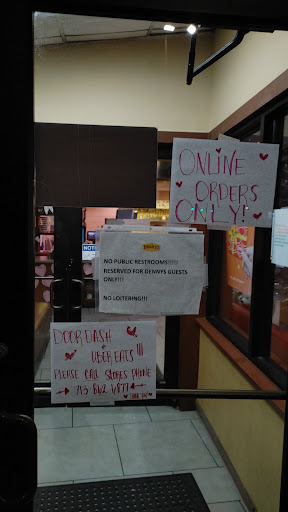 ONLINE
ORDERS
ONLY!
NOTI
NO PUBLIC RESTROOMS!!!!!
RESERVED FOR DENNYS GUESTS
ONLY!!!
NO LOITERING!!!
DOOR DASH
&
UBER EATS!!!
PLEASE CALL STORES PHONE
713 862 4877